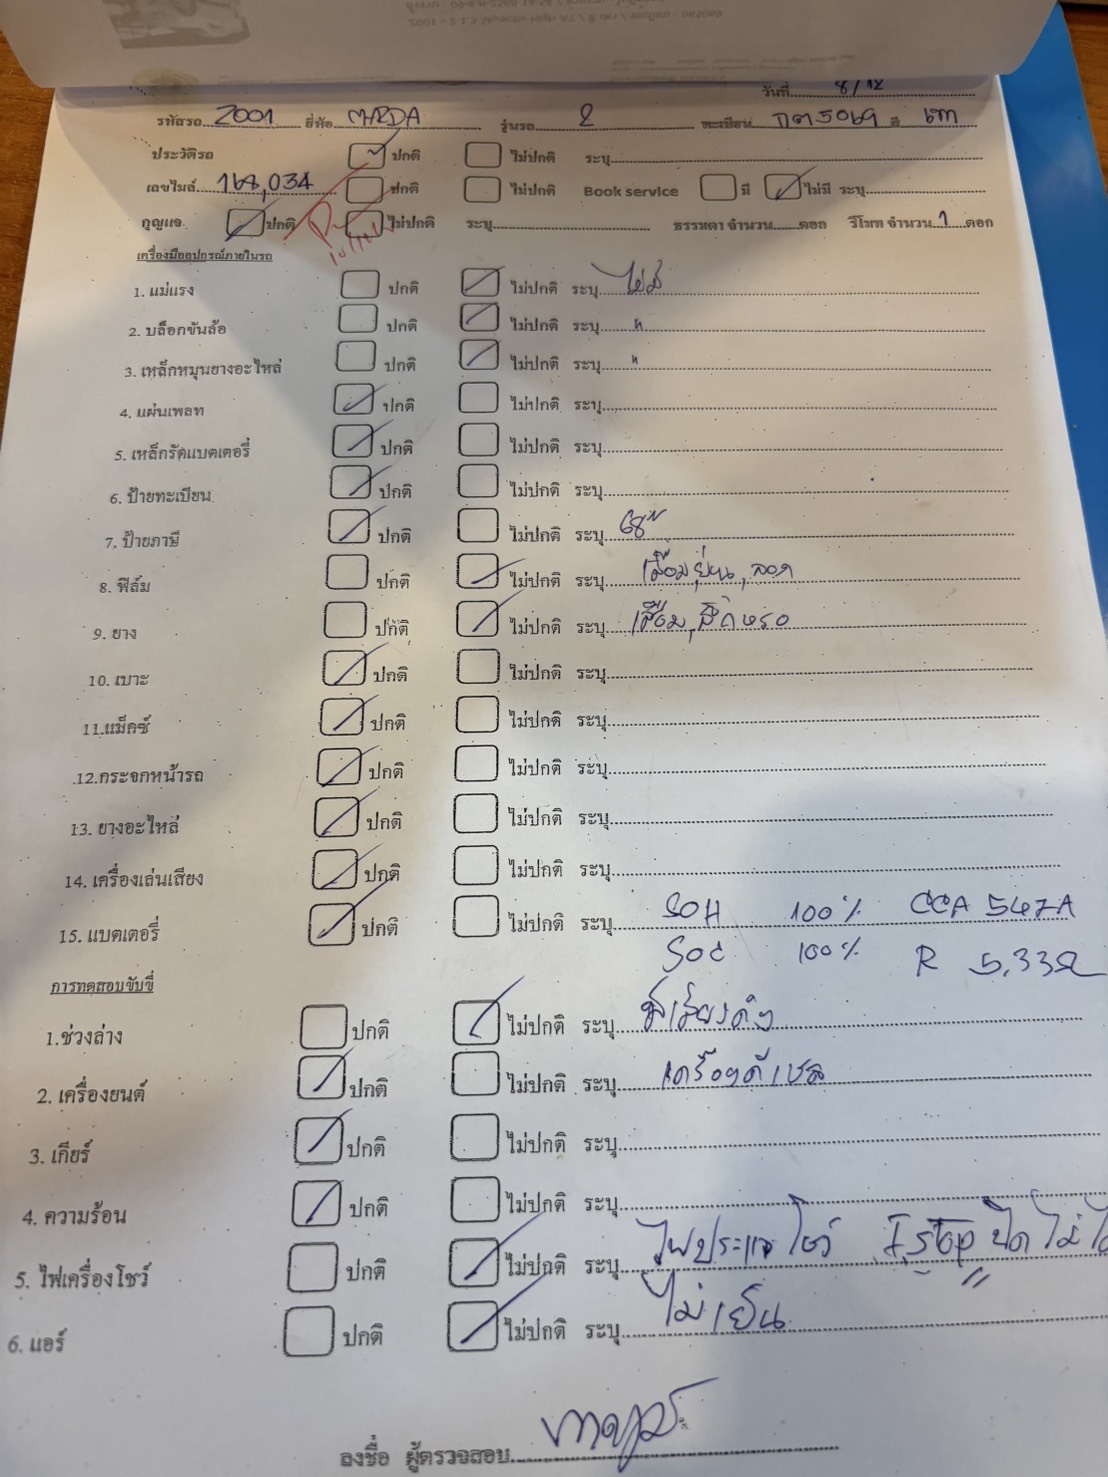 วันที่ 8/12
รหัสรถ 2001 ยี่ห้อ MAZDA รุ่นรถ 2 ทะเบียน กต5069 สี เทา
ประวัติรถ ปกติ ไม่ปกติ ระบุ
เลขไมล์ 168,034 ปกติ ไม่ปกติ Book service มี ไม่มี ระบุ
กุญแจ ปกติ ไม่ปกติ ระบุ ธรรมดา จำนวน ดอก รีโมท จำนวน 1 ดอก
เครื่องมืออุปกรณ์ภายในรถ
1. แม่แรง ปกติ ไม่ปกติ ระบุ ไม่มี
2. บล็อกขันล้อ ปกติ ไม่ปกติ ระบุ "
3. เหล็กหมุนยางอะไหล่ ปกติ ไม่ปกติ ระบุ "
4. แผ่นเพลท ปกติ ไม่ปกติ ระบุ
5. เหล็กรัดแบตเตอรี่ ปกติ ไม่ปกติ ระบุ
6. ป้ายทะเบียน ปกติ ไม่ปกติ ระบุ
7. ป้ายภาษี ปกติ ไม่ปกติ ระบุ 68
8. ฟิล์ม ปกติ ไม่ปกติ ระบุ
9. ยาง ปกติ ไม่ปกติ ระบุ เสื่อม, สึกหรอ
10. เบาะ ปกติ ไม่ปกติ ระบุ
11.แม็คซ์ ปกติ ไม่ปกติ ระบุ
12.กระจกหน้ารถ ปกติ ไม่ปกติ ระบุ
13. ยางอะไหล่ ปกติ ไม่ปกติ ระบุ
14. เครื่องเล่นเสียง ปกติ ไม่ปกติ ระบุ
15. แบตเตอรี่ ปกติ ไม่ปกติ ระบุ SOH 100% CCA 547A
SOC 100% R 5.33Ω
การทดสอบขับขี่
1.ช่วงล่าง ปกติ ไม่ปกติ ระบุ มีเสียงดัง
2. เครื่องยนต์ ปกติ ไม่ปกติ ระบุ เครื่องดีเซล
3. เกียร์ ปกติ ไม่ปกติ ระบุ
4. ความร้อน ปกติ ไม่ปกติ ระบุ
5. ไฟเครื่องโชว์ ปกติ ไม่ปกติ ระบุ ไฟประแจโชว์ I stop ปิดไม่ไ
6. แอร์ ปกติ ไม่ปกติ ระบุ ไม่เย็น
ลงชื่อ ผู้ตรวจสอบ